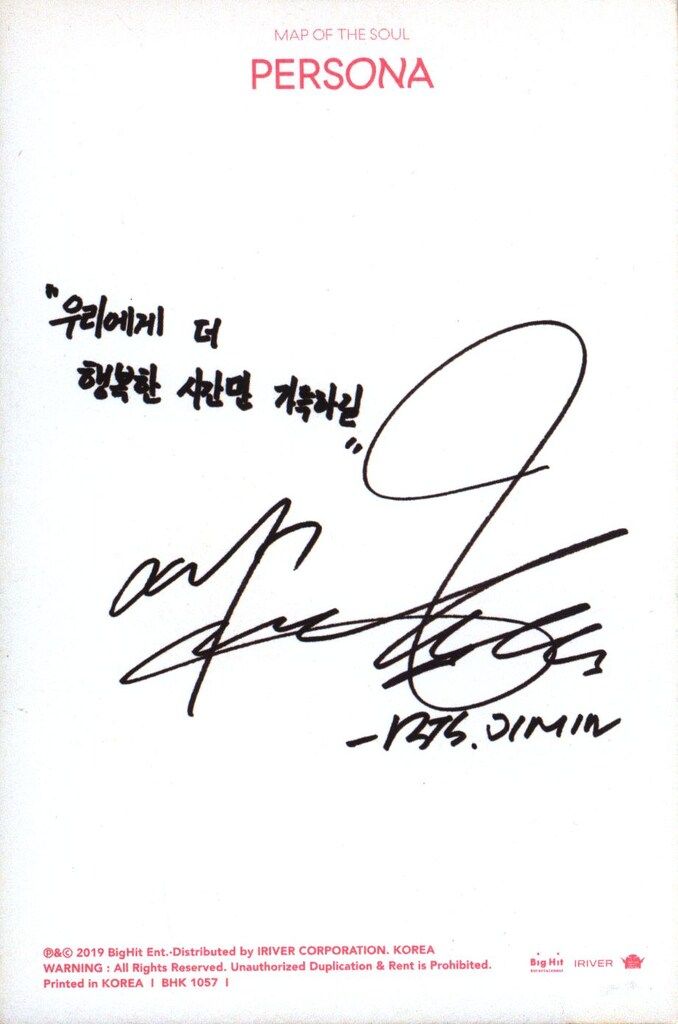 MAP OF THE SOUL
PERSONA
"우리에게 더
행복한 시간만 가득하길
"
-BTS. JIMIN
℗&© 2019 BigHit Ent.·Distributed by IRIVER CORPORATION. KOREA
WARNING : All Rights Reserved. Unauthorized Duplication & Rent is Prohibited.
Printed in KOREA I BHK 1057 I
Big Hit
Entertainment
IRIVER